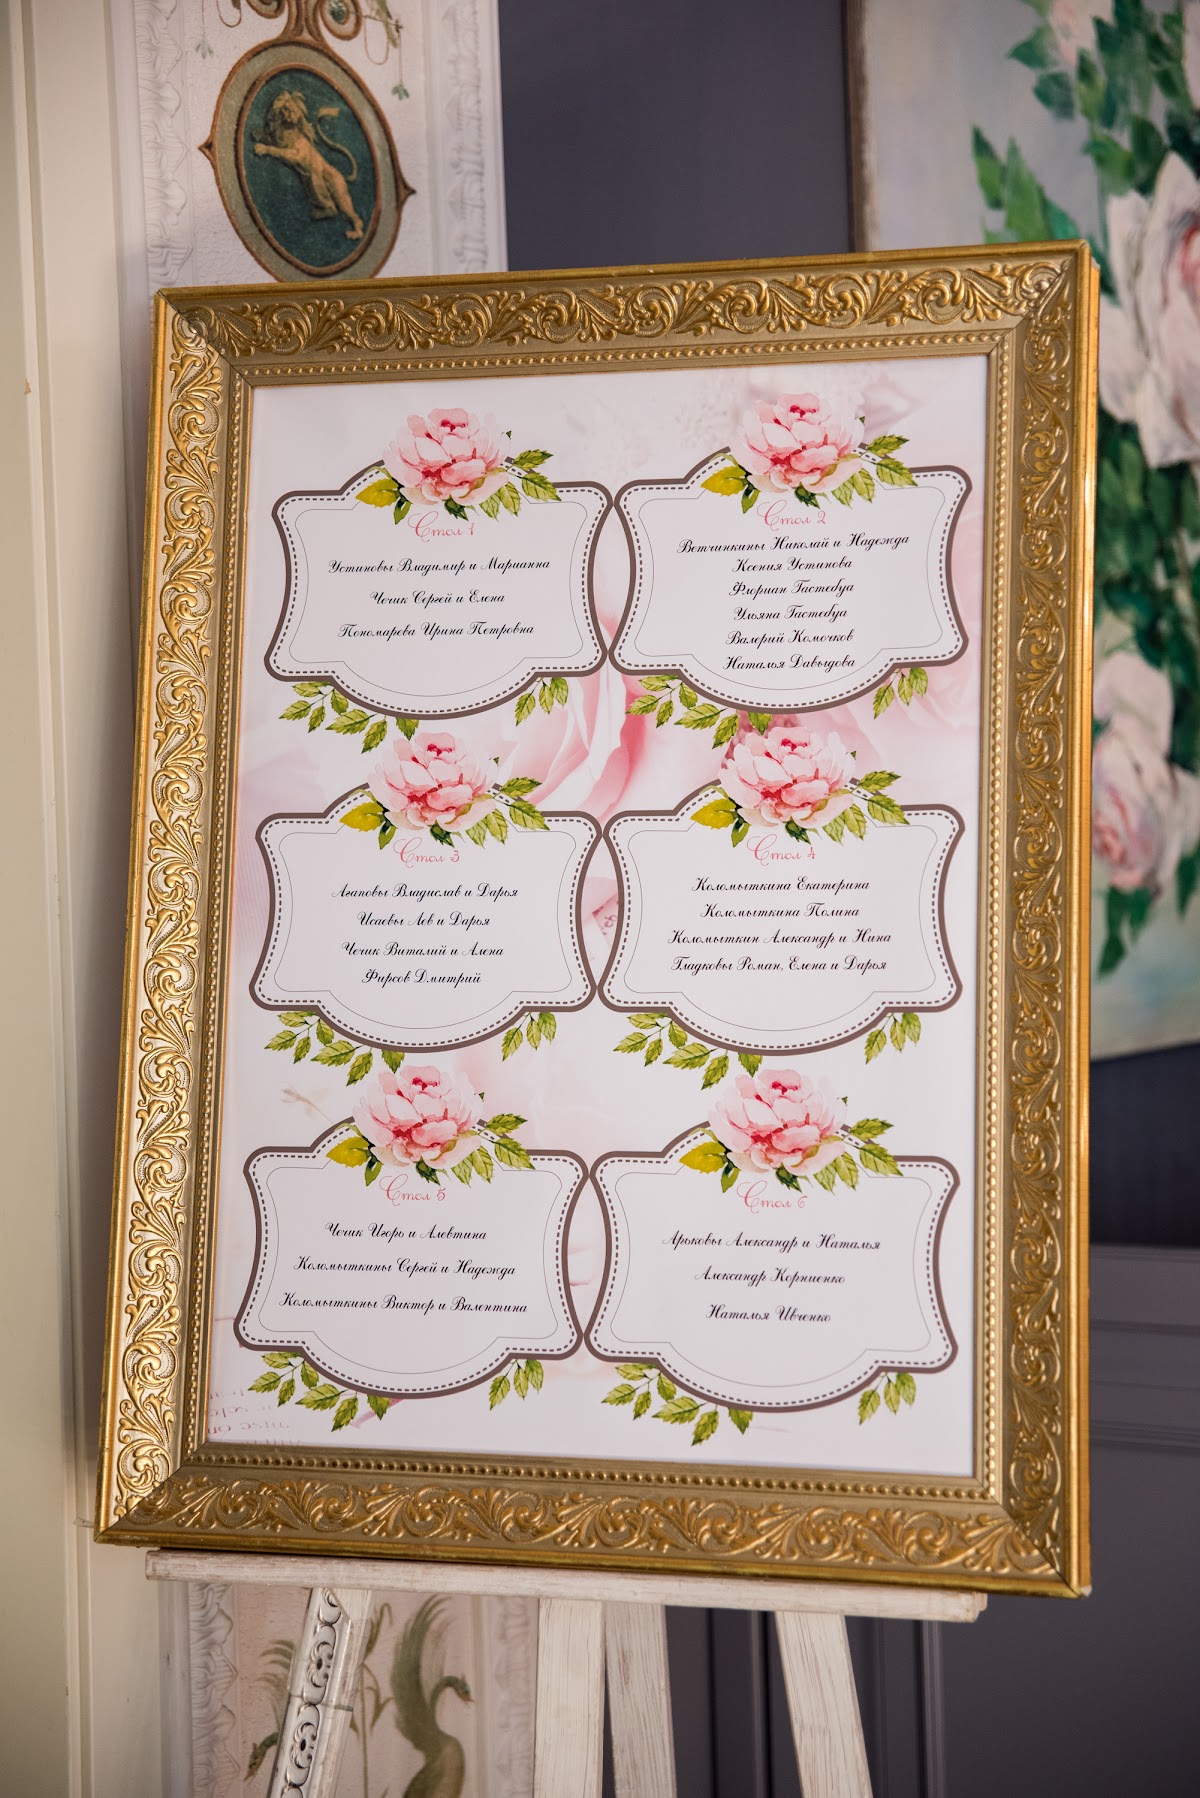 Стол 1
Устиновы Владимир и Марианна
Чечик Сергей и Елена
Пономарева Ирина Петровна
Стол 2
Ветчинкины Николай и Надежда
Ксения Устинова
Флориан Гастебуа
Ульяна Гастебуа
Валерий Комочков
Наталья Давыдова
Стол 3
Агаповы Владислав и Дарья
Исаевы Лев и Дарья
Чечик Виталий и Алена
Фирсов Дмитрий
Стол 4
Коломыткина Екатерина
Коломыткина Полина
Коломыткин Александр и Нина
Гладковы Роман, Елена и Дарья
Стол 5
Чечик Игорь и Алевтина
Коломыткины Сергей и Надежда
Коломыткины Виктор и Валентина
Стол 6
Арьковы Александр и Наталья
Александр Корниенко
Наталья Ивченко